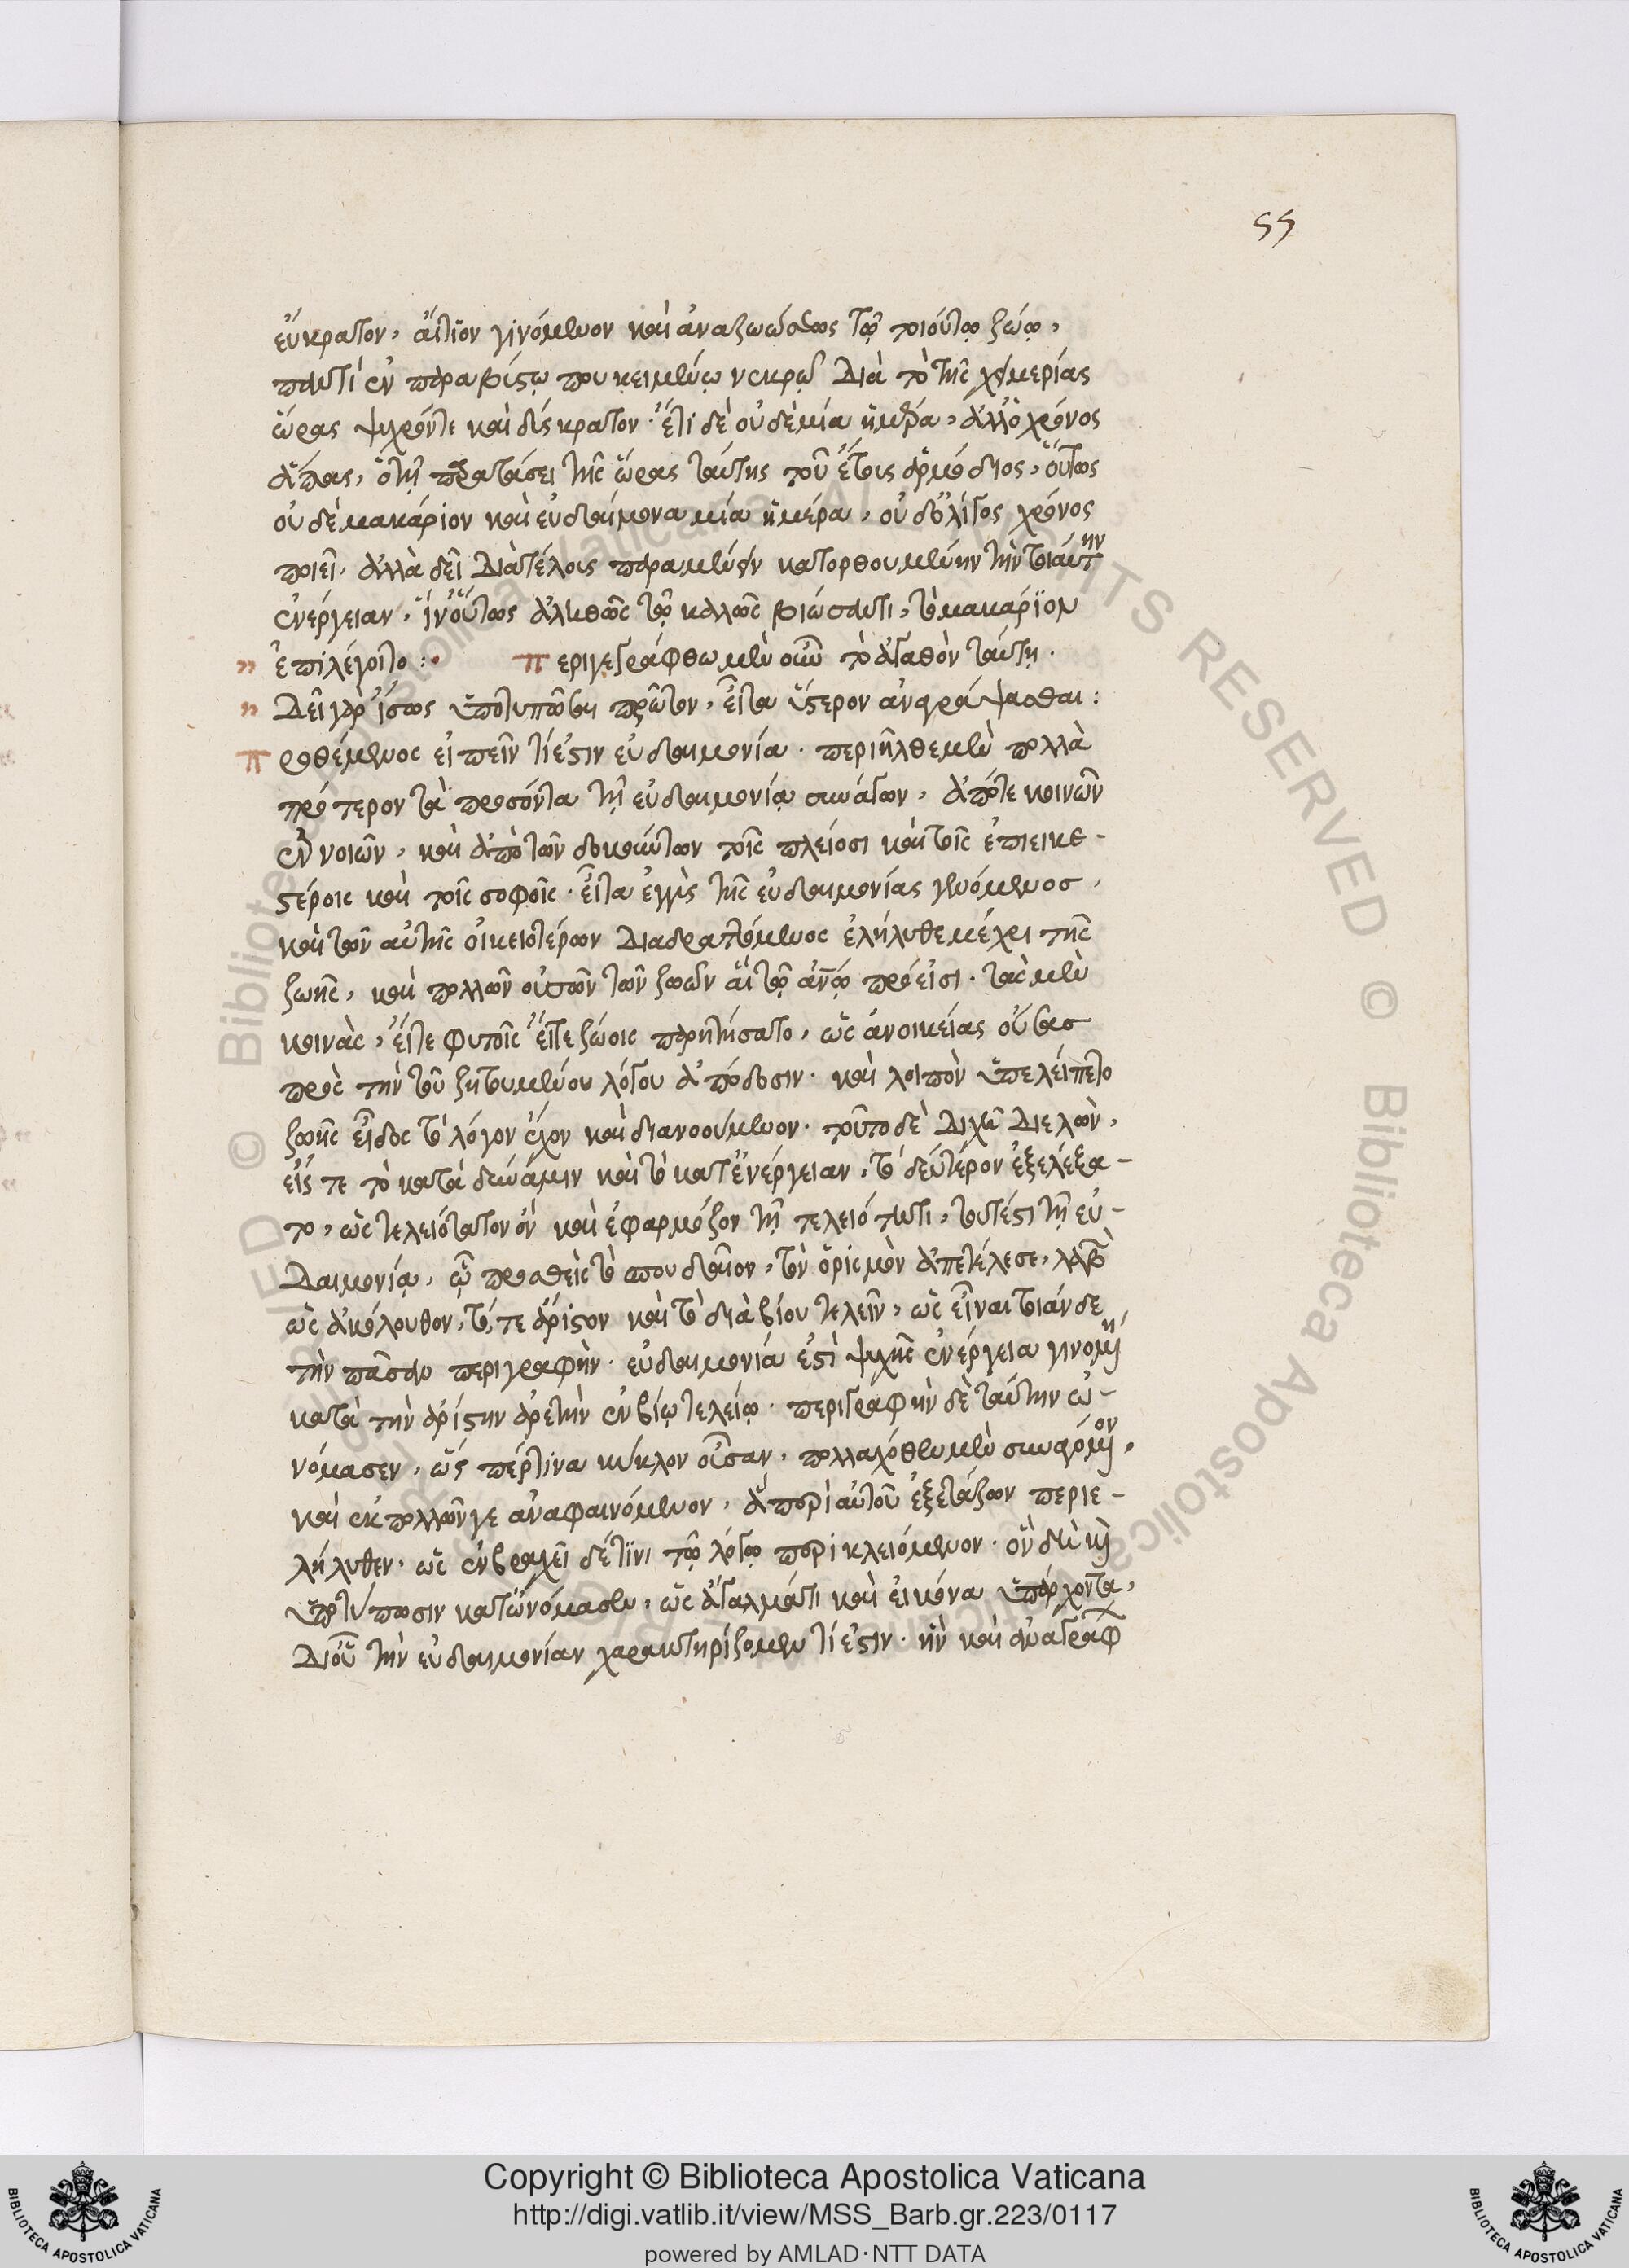 55
εὔκρατον, αἴτιον γινόμενον καὶ ἀναζωώσεως τῷ τοιούτῳ ζώῳ,
παντὶ ἐν
που κειμένῳ νεκρῷ διὰ τὸ τῆς χειμερίας
ὥρας ψυχρόν τε καὶ δύσκρατον· ἔτι δὲ οὐδὲ μία ἡμέρα, ἀλλ' ὁ χρόνος
ἅπας, ὁ τῇ παρατάσει τῆς ὥρας ταύτης τοῦ ἔτους ἁρμόδιος, οὕτως
οὐδὲ μακάριον καὶ εὐδαίμονα μία ἡμέρα, οὐδ' ὀλίγος χρόνος
ποιεῖ, ἀλλὰ δεῖ διὰ τέλους παραμένειν κατορθουμένην τὴν τοιαύτην
ἐνέργειαν, ἵν' οὕτως ἀληθῶς τῷ καλῶς βιώσαντι, τὸ μακάριον
ἐπιλέγοιτο: Περιγεγράφθω μὲν οὖν τὸ ἀγαθὸν ταύτῃ.
δεῖ γὰρ ἴσως ὑποτυπῶσαι πρῶτον, εἶτα ὕστερον ἀναγράψασθαι:
Προθέμενος εἰπεῖν τί ἐστιν εὐδαιμονία· περιῆλθε μὲν πολλὰ
πρότερον τὰ προσόντα τῇ εὐδαιμονίᾳ συνάγων, ἀπό τε κοινῶν
ἐννοιῶν, καὶ ἀπὸ τῶν δοκούντων τοῖς πλείοσι καὶ τοῖς ἐπιεικε-
στέροις καὶ τοῖς σοφοῖς· εἶτα ἐγγὺς τῆς εὐδαιμονίας γενόμενος,
καὶ τῶν αὐτῆς οἰκειοτέρων διαδραττόμενος ἐλήλυθε μέχρι τῆς
ζωῆς, καὶ πολλῶν οὐσῶν τῶν ζωῶν αἳ τῷ ἀνῳ πρόεισι· τὰς μὲν
κοινὰς, εἴτε φυτοῖς εἴτε ζώοις παρῃτήσατο, ὡς ἀνοικείας οὔσας
πρὸς τὴν τοῦ ζητουμένου λόγου ἀπόδοσιν· καὶ λοιπὸν ὑπελείπετο
ζωῆς εἶδος τὸ λόγον ἔχον καὶ διανοούμενον· τοῦτο δὲ διχῇ διελὼν,
εἴς τε τὸ κατὰ δύναμιν καὶ τὸ κατ' ἐνέργειαν, τὸ δεύτερον ἐξελέξα-
το, ὡς τελειότατον ὂν καὶ ἐφαρμόζον τῇ τελειότητι, τουτέστι τῇ εὐ-
δαιμονίᾳ, ᾧ προσθεὶς τὸ σπουδαῖον, τὸν ὁρισμὸν ἀπετέλεσε, λαβὼν
ὡς ἀκόλουθον, τό, τε ἄριστον καὶ τὸ διὰ βίου τελεῖν, ὡς εἶναι τοιάνδε
τὴν πᾶσαν περιγραφήν· εὐδαιμονία ἐστὶ ψυχῆς ἐνέργεια γινομένη
κατὰ τὴν ἀρίστην ἀρετὴν ἐν βίῳ τελείῳ· περιγραφὴν δὲ ταύτην ὠ-
νόμασεν, ὥς περ τινα κύκλον οὖσαν, πολλαχόθεν μὲν συναγόμενον,
καὶ ἐκ πολλῶν γε ἀναφαινόμενον, ἃ περὶ αὐτοῦ ἐξετάζων περιε-
λήλυθεν· ὡς ἐν βραχεῖ δέ τινι τῷ λόγῳ περικλειόμενον· ὃν δὴ καὶ
ὑποτύπωσιν κατωνόμασεν, ὡς ἀγάλματι καὶ εἰκόνα ὑπάρχοντα,
δι' οὗ τὴν εὐδαιμονίαν χαρακτηρίζομεν τί ἐστιν· ἣν καὶ ἀναγραφ
Copyright © Biblioteca Apostolica Vaticana
http://digi.vatlib.it/view/MSS_Barb.gr.223/0117
powered by AMLAD·NTT DATA